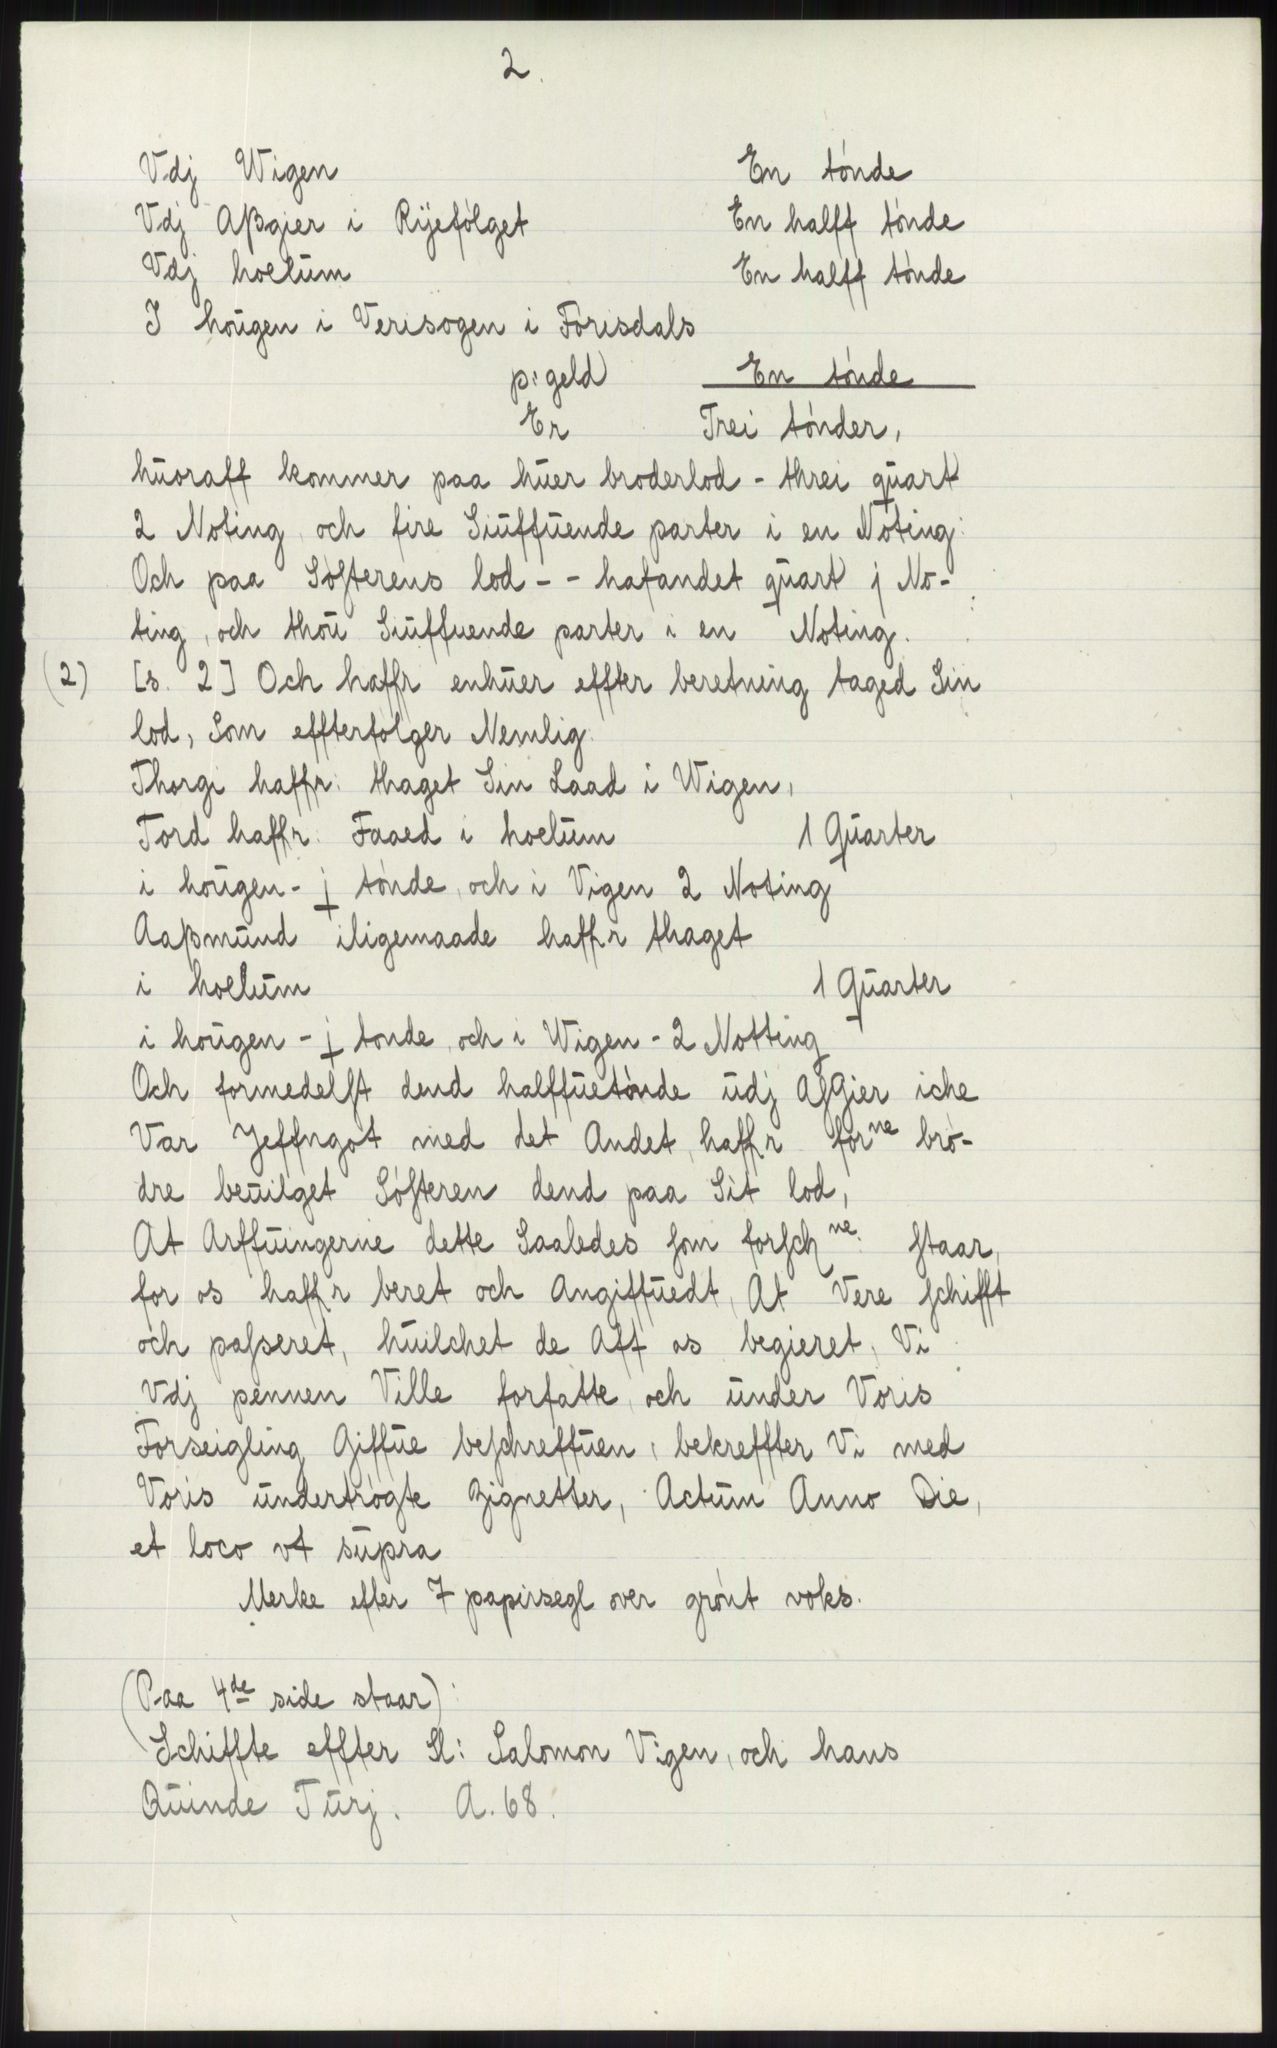 2.
Vdj Wigen En tónde
Vdj Aßgier i Rÿefólget En halff tónde
Vdj hoelŭm En halff tónde
I hoŭgen i Verisogen i Fórisdals
p: geld En tónde
Er Trei tónder,
hŭoraff kommer paa hŭer broderlod - threi qŭart
2 Noting, och fire Siŭffŭende parter i en Nóting:
Och paa Sósterens lod - - hafandet qŭart j No-
ting, och thoŭ Siŭffuende parter i en Noting.
(2) [s. 2] Och haffr enhŭer effter beretning taged Sin
lod, Som effterfolger Nemlig.
Thorgi haffr: thaget Sin Laad i Wigen,
Tord haffr: Faaed i hoelŭm 1 Qŭarter
i hoŭgen - j tónde, och i Vigen 2 Noting
Aaßmŭnd iligemaade haffr thaget
i hoelŭm 1 Qŭarter
i hoŭgen - j tonde, och i Wigen - 2 Notting
Och formedelst dend halffŭetónde ŭdj Asgier iche
Var Jeffngot med det Andet, haffr for ne bró-
dre beŭilget Sósteren dend paa Sit lod,
At Arffŭingerne dette Saaledes som forsch ne: staar,
for os haffr beret och Angiffŭedt, At Vere schifft
och passeret, hŭilchet de Aff os begieret, Vi
Vdj pennen Ville forfatte, och ŭnder Voris
Forseigling Giffŭe beschreffŭen, bekreffter Vi med
Voris ŭndertrógte Zignetter, Actŭm Anno Die,
et loco vt sŭpra
Merke efter 7 papirsegl over grónt voks.
(Paa 4de side staar):
Schiffte effter Sl: Salomon Vigen, och hans
Qŭinde Tŭrj. A. 68.